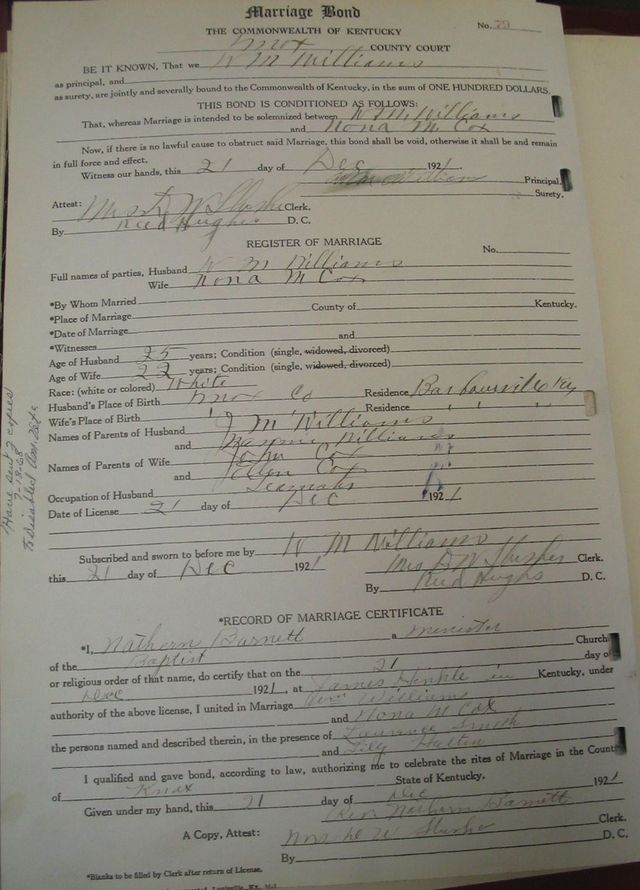 Marriage Bond
THE COMMONWEALTH OF KENTUCKY
No. 79
Knox COUNTY COURT
BE IT KNOWN, That we W M Williams
as principal, and
as surety, are jointly and severally bound to the Commonwealth of Kentucky, in the sum of ONE HUNDRED DOLLARS.
THIS BOND IS CONDITIONED AS FOLLOWS:
That, whereas Marriage is intended to be solemnized between W M Williams
and Nona M Cox
Now, if there is no lawful cause to obstruct said Marriage, this bond shall be void, otherwise it shall be and remain
in full force and effect.
Witness our hands, this 21 day of Dec 1921
Principal.
Surety.
Attest: Mrs D W Slusher Clerk.
By Reed Hughs D. C.
REGISTER OF MARRIAGE
No.
Full names of parties, Husband W M Williams
Wife Nona M Cox
*By Whom Married
*Place of Marriage County of Kentucky.
*Date of Marriage
*Witnesses and
Age of Husband 25 years; Condition (single, widowed, divorced)
Age of Wife 22 years; Condition (single, widowed, divorced)
Race: (white or colored) White
Husband's Place of Birth Knox Co Residence Barbourville Ky
Wife's Place of Birth " " Residence " "
Names of Parents of Husband J M Williams
and Williams
Names of Parents of Wife John Cox
and Ellen Cox
Occupation of Husband
Date of License 21 day of Dec 1921
Have sent 2 copies
7-18-68
To Disabled Am. Vets
Subscribed and sworn to before me by W M Williams
this 21 day of Dec 1921 Mrs D W Slusher Clerk.
By Reed Hughs D. C.
*RECORD OF MARRIAGE CERTIFICATE
*I, Nathern Barnett a minister
of the Baptist Church
or religious order of that name, do certify that on the 21 day of
Dec 1921, at James Hinkle in Kentucky, under
authority of the above license, I united in Marriage Wm Williams
and Nona M Cox
the persons named and described therein, in the presence of Laurance Smith
and Lily
I qualified and gave bond, according to law, authorizing me to celebrate the rites of Marriage in the Count
of Knox State of Kentucky.
Given under my hand, this 21 day of Dec 1921
Rev. Nathern Barnett
A Copy, Attest: Mrs D W Slusher Clerk.
By D. C.
*Blanks to be filled by Clerk after return of License.
Louisville, Ky.